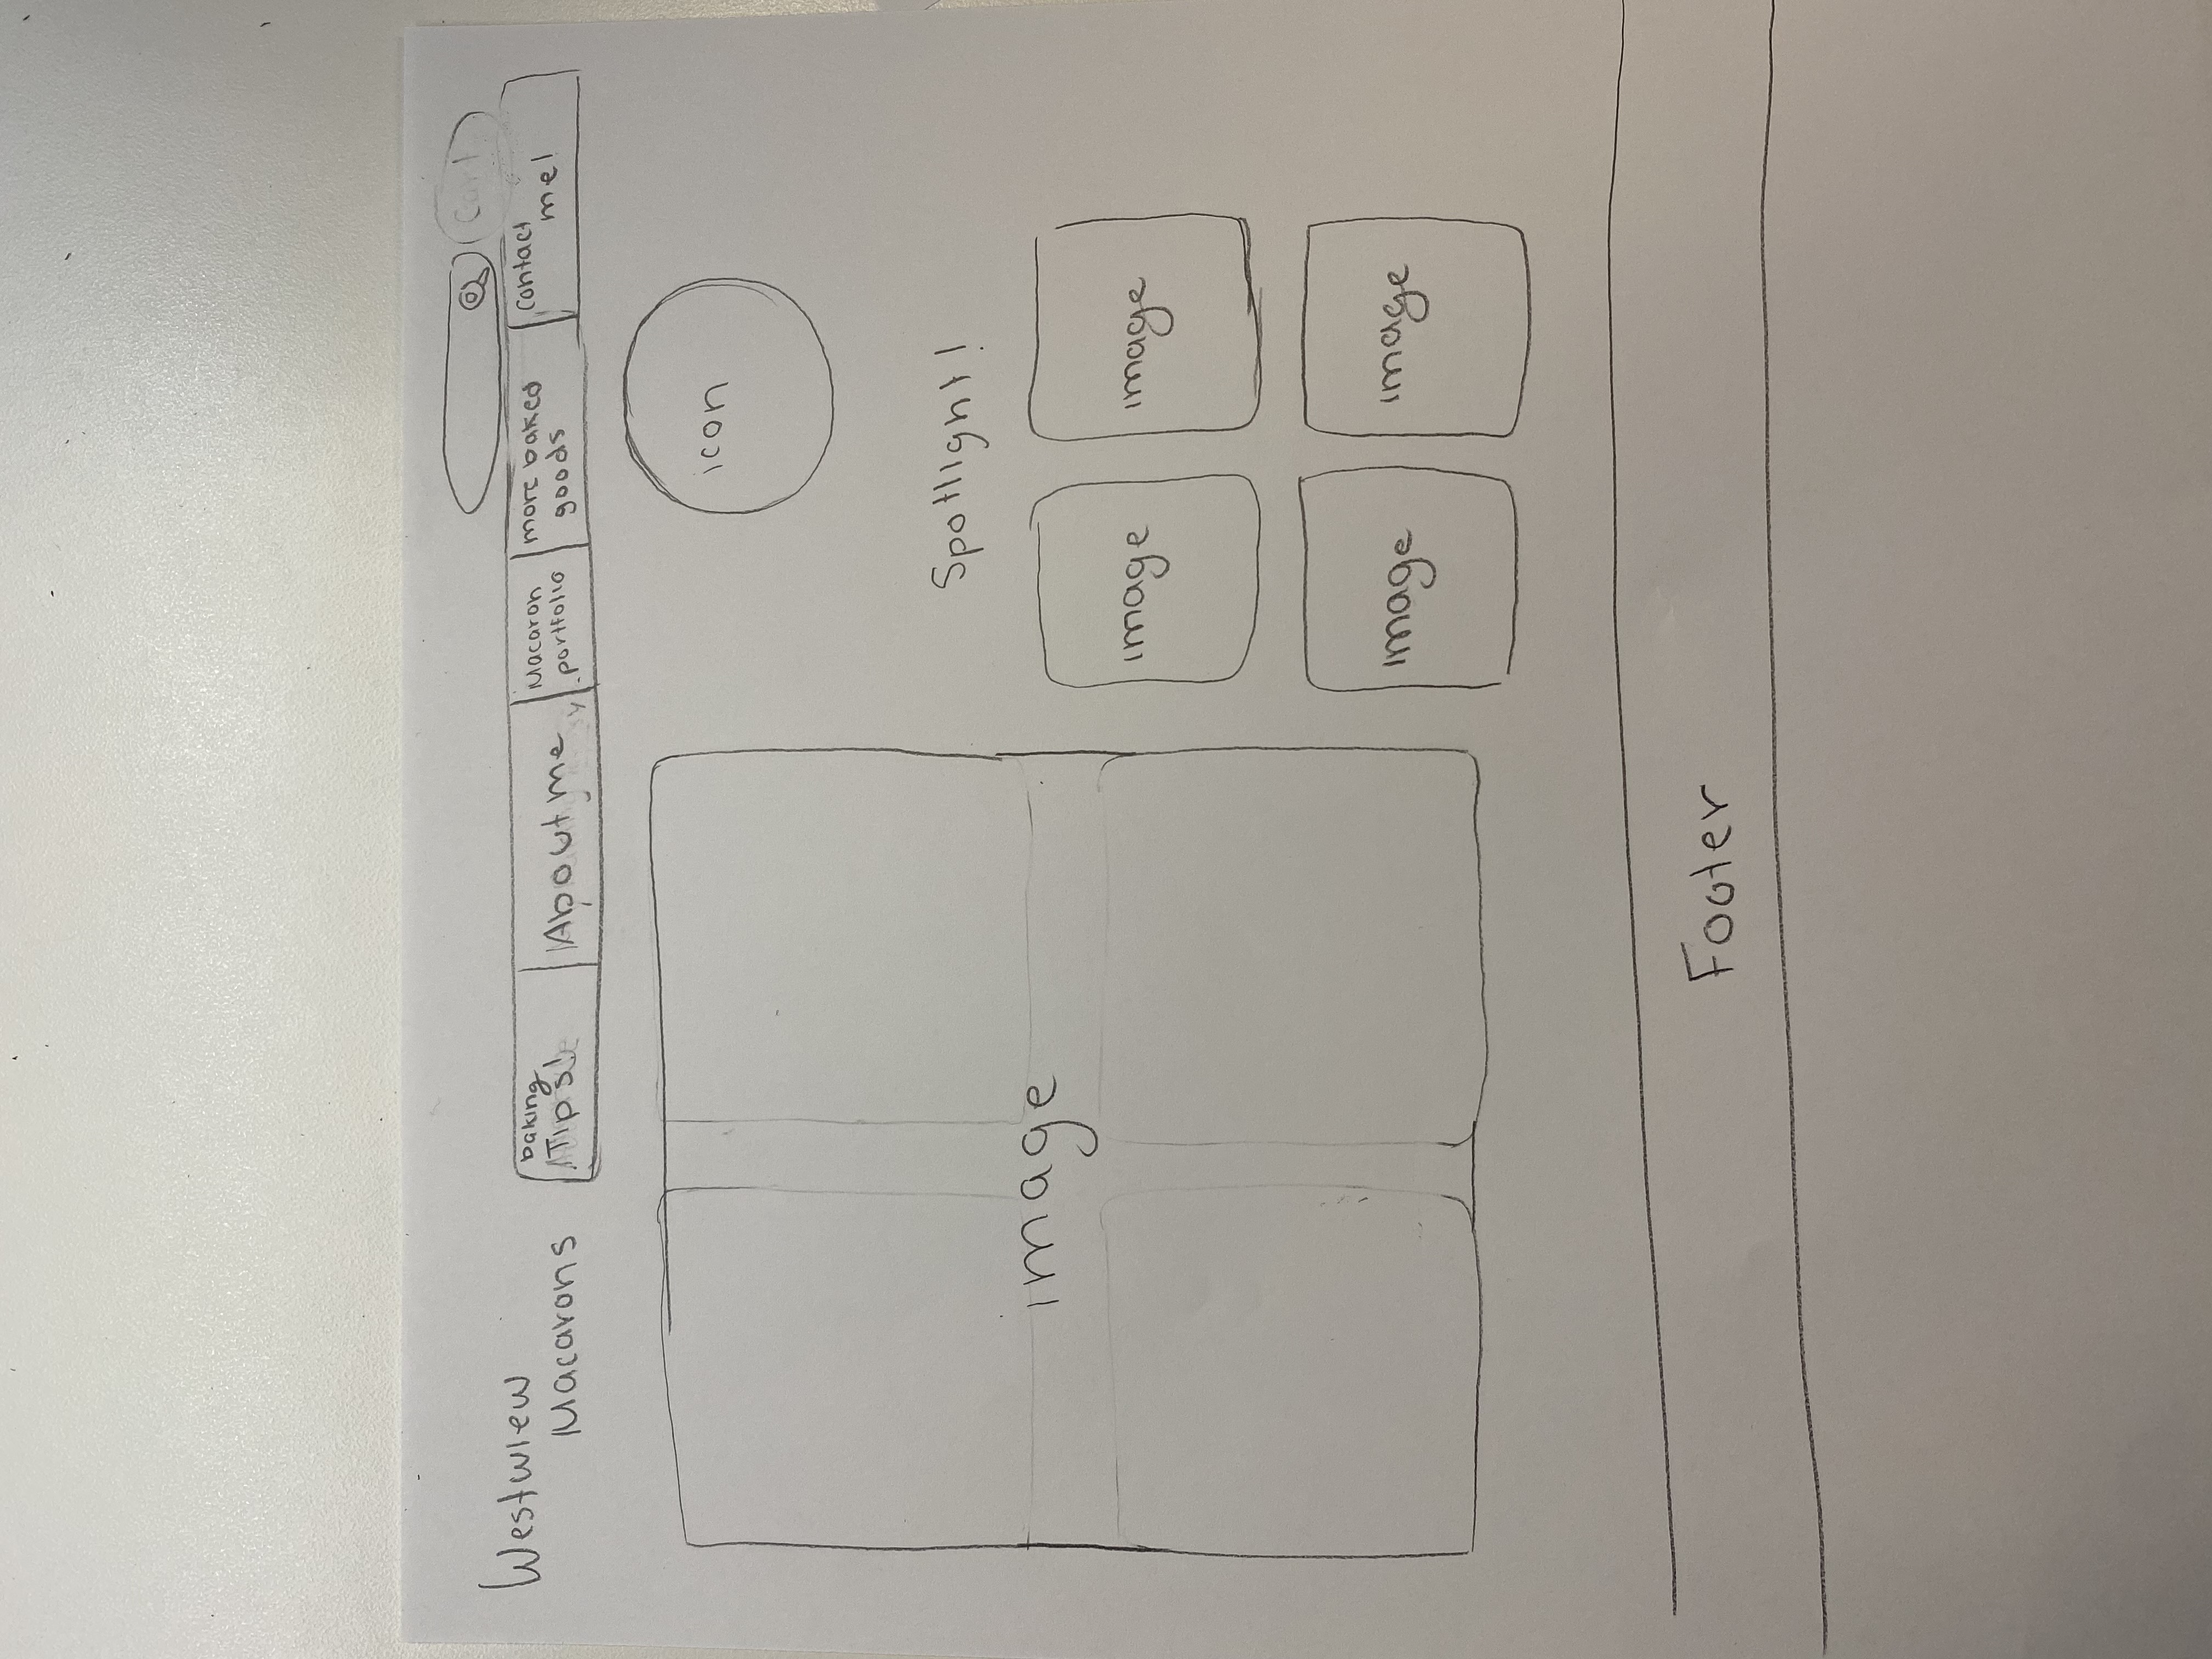 Westview
Macarons
Cart
baking
Tips!
About me
Macaron
portfolio
more baked
goods
Contact
me!
icon
image
Spotlight!
image
image
image
image
Footer